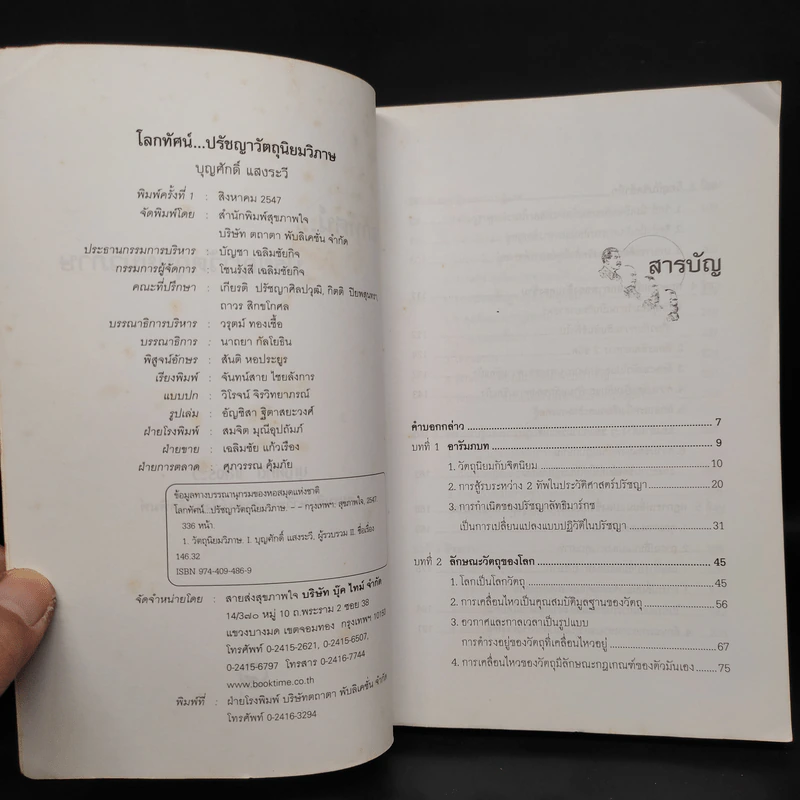 โลกทัศน์...ปรัชญาวัตถุนิยมวิภาษ
บุญศักดิ์ แสงระวี
พิมพ์ครั้งที่ 1 : สิงหาคม 2547
จัดพิมพ์โดย : สำนักพิมพ์สุขภาพใจ
บริษัท ตถาตา พับลิเคชั่น จำกัด
ประธานกรรมการบริหาร : บัญชา เฉลิมชัยกิจ
กรรมการผู้จัดการ : โชนรังสี เฉลิมชัยกิจ
คณะที่ปรึกษา : เกียรติ ปรัชญาศิลปวุฒิ, กิตติ ปิยพสุนทรา
ถาวร สิกขโกศล
บรรณาธิการบริหาร : วรุตม์ ทองเชื้อ
บรรณาธิการ : นาถยา กัลโยธิน
พิสูจน์อักษร : สันติ หอประยูร
เรียงพิมพ์ : จันทน์สาย ไชยลังการ
แบบปก : วิโรจน์ จิรวิทยาภรณ์
รูปเล่ม : อัญชิสา ฐิตาสยะวงศ์
ฝ่ายโรงพิมพ์ : สมจิต มุณีอุปถัมภ์
ฝ่ายขาย : เฉลิมชัย แก้วเรือง
ฝ่ายการตลาด : ศุภวรรณ คุ้มภัย
ข้อมูลทางบรรณานุกรมของหอสมุดแห่งชาติ
โลกทัศน์...ปรัชญาวัตถุนิยมวิภาษ. -- กรุงเทพฯ: สุขภาพใจ, 2547
336 หน้า.
1. วัตถุนิยมวิภาษ. I. บุญศักดิ์ แสงระวี, ผู้รวบรวม II. ชื่อเรื่อง
146.32
ISBN 974-409-486-9
จัดจำหน่ายโดย : สายส่งสุขภาพใจ บริษัท บุ๊ค ไทม์ จำกัด
14/๓๔๐ หมู่ 10 ถ.พระราม 2 ซอย 38
แขวงบางมด เขตจอมทอง กรุงเทพฯ 10150
โทรศัพท์ 0-2415-2621, 0-2415-6507,
0-2415-6797 โทรสาร 0-2416-7744
www.booktime.co.th
พิมพ์ที่ : ฝ่ายโรงพิมพ์ บริษัทตถาตา พับลิเคชั่น จำกัด
โทรศัพท์ 0-2416-3294
สารบัญ
คำบอกกล่าว 7
บทที่ 1 อารัมภบท 9
1. วัตถุนิยมกับจิตนิยม 10
2. การสู้รบระหว่าง 2 ทัพในประวัติศาสตร์ปรัชญา 20
3. การกำเนิดของปรัชญาลัทธิมาร์กซ
เป็นการเปลี่ยนแปลงแบบปฏิวัติในปรัชญา 31
บทที่ 2 ลักษณะวัตถุของโลก 45
1. โลกเป็นโลกวัตถุ 45
2. การเคลื่อนไหวเป็นคุณสมบัติมูลฐานของวัตถุ 56
3. อวกาศและกาลเวลาเป็นรูปแบบ
การดำรงอยู่ของวัตถุที่เคลื่อนไหวอยู่ 67
4. การเคลื่อนไหวของวัตถุมีลักษณะกฎเกณฑ์ของตัวมันเอง 75